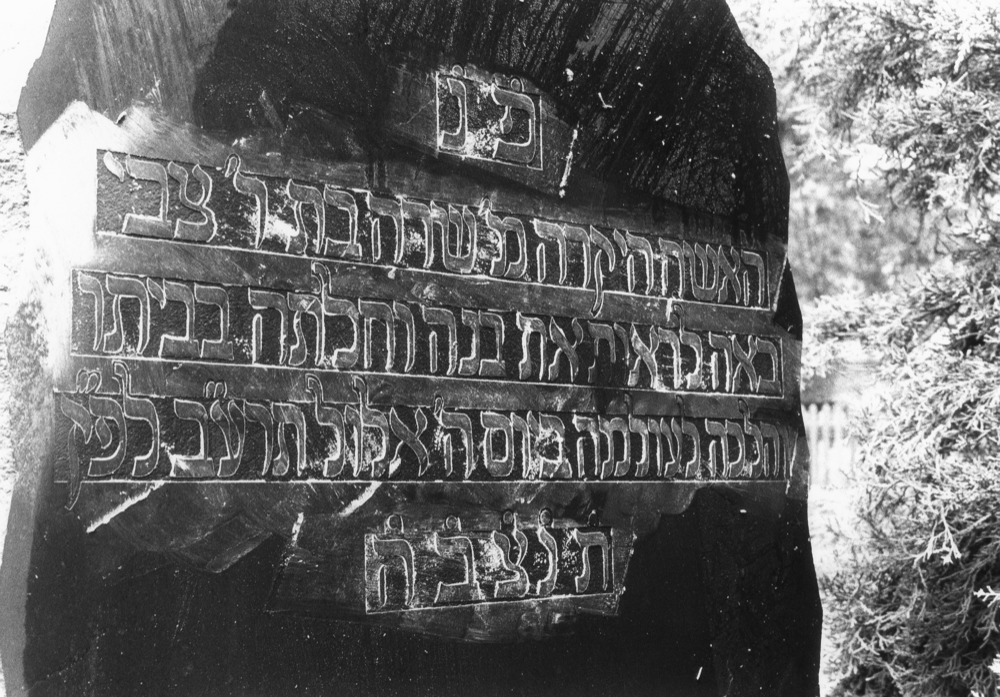 פ נ
האשה היקרה מ' שרה בת ר' צבי
באה לראות את בנה וחלתה בביתו
והלכה לעולמה ביום ה' אלול תרע"ב לפ"ק
ת נ צ ב ה